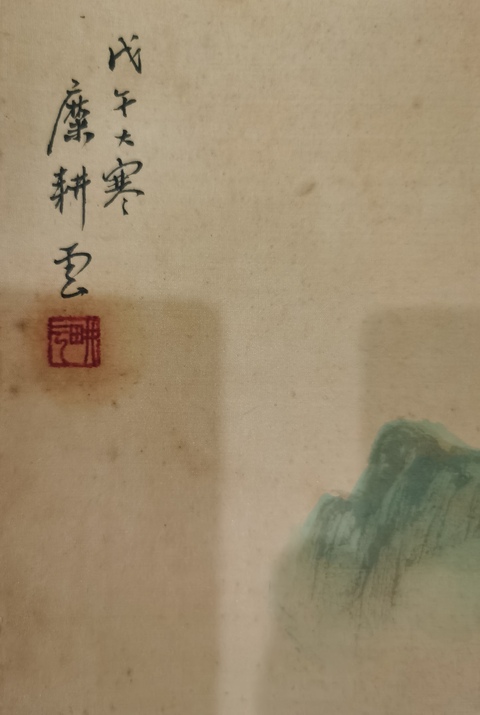 戊午大寒
糜耕雲